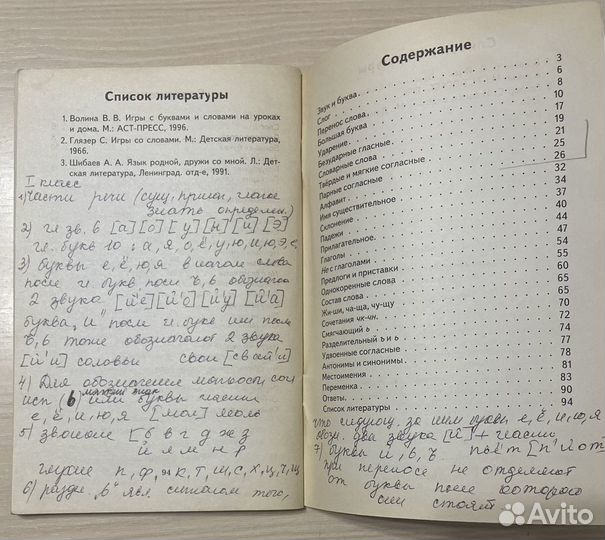 Список литературы
1. Волина В. В. Игры с буквами и словами на уроках
и дома. М.: АСТ-ПРЕСС, 1996.
2. Глязер С. Игры со словами. М.: Детская литература,
1966.
3. Шибаев А. А. Язык родной, дружи со мной. Л.: Дет-
ская литература, Ленинград. отд-е, 1991.
I класс
1) Части речи (сущ, прилаг, глагол
знать определен.)
2) гл зв. 6 [а] [о] [у] [ы] [и] [э]
гл. букв 10: а, я, о, ё, у, ю, и, ы, э, е
3) буквы е, ё, ю, я в начале слова
после гл. букв после ъ, ь обознач
2 звука [й'э] [й'о] [й'у] [й'а]
буква "и" после гл. букв или после
ь тоже обозначают 2 звука
[й'и] соловьи свои [свай'и]
4) Для обозначение мягкость согл
мягкий знак
исп (ь) или буквы гласн
е, ё, и, ю, я [мол'] моль
5) звонкие [б в г д ж з
й л м н р
глухие п, ф, к, т, ш, с, х, ц, ч, щ
6) разде. "ь" явл. сигналом того,
Содержание
Звук и буква 3
Слог 6
Перенос слова 8
Большая буква 10
Ударение 17
Безударные гласные 19
Словарные слова 21
Твёрдые и мягкие согласные 25
Парные согласные 26
Алфавит 32
Имя существительное 34
Склонение 41
Падежи 44
Прилагательное 47
Глаголы 54
Не с глаголами 55
Предлоги и приставки 60
Однокоренные слова 65
Состав слова 65
Жи-ши, ча-ща, чу-щу 70
Сочетания чк-чн 72
Смягчающий ь 74
Разделительный ъ и ь 77
Удвоенные согласные 78
Антонимы и синонимы 81
Местоимения 83
Переменка 90
Ответы 94
Список литературы
что следующ. за ним буквы е, ё, и, ю, я
обозн. два звука [й] + гласн.
7) буквы й, ь, ъ пьёт [п'й'от
при переносе не отделяют
от буквы после которого
они стоят
Avito